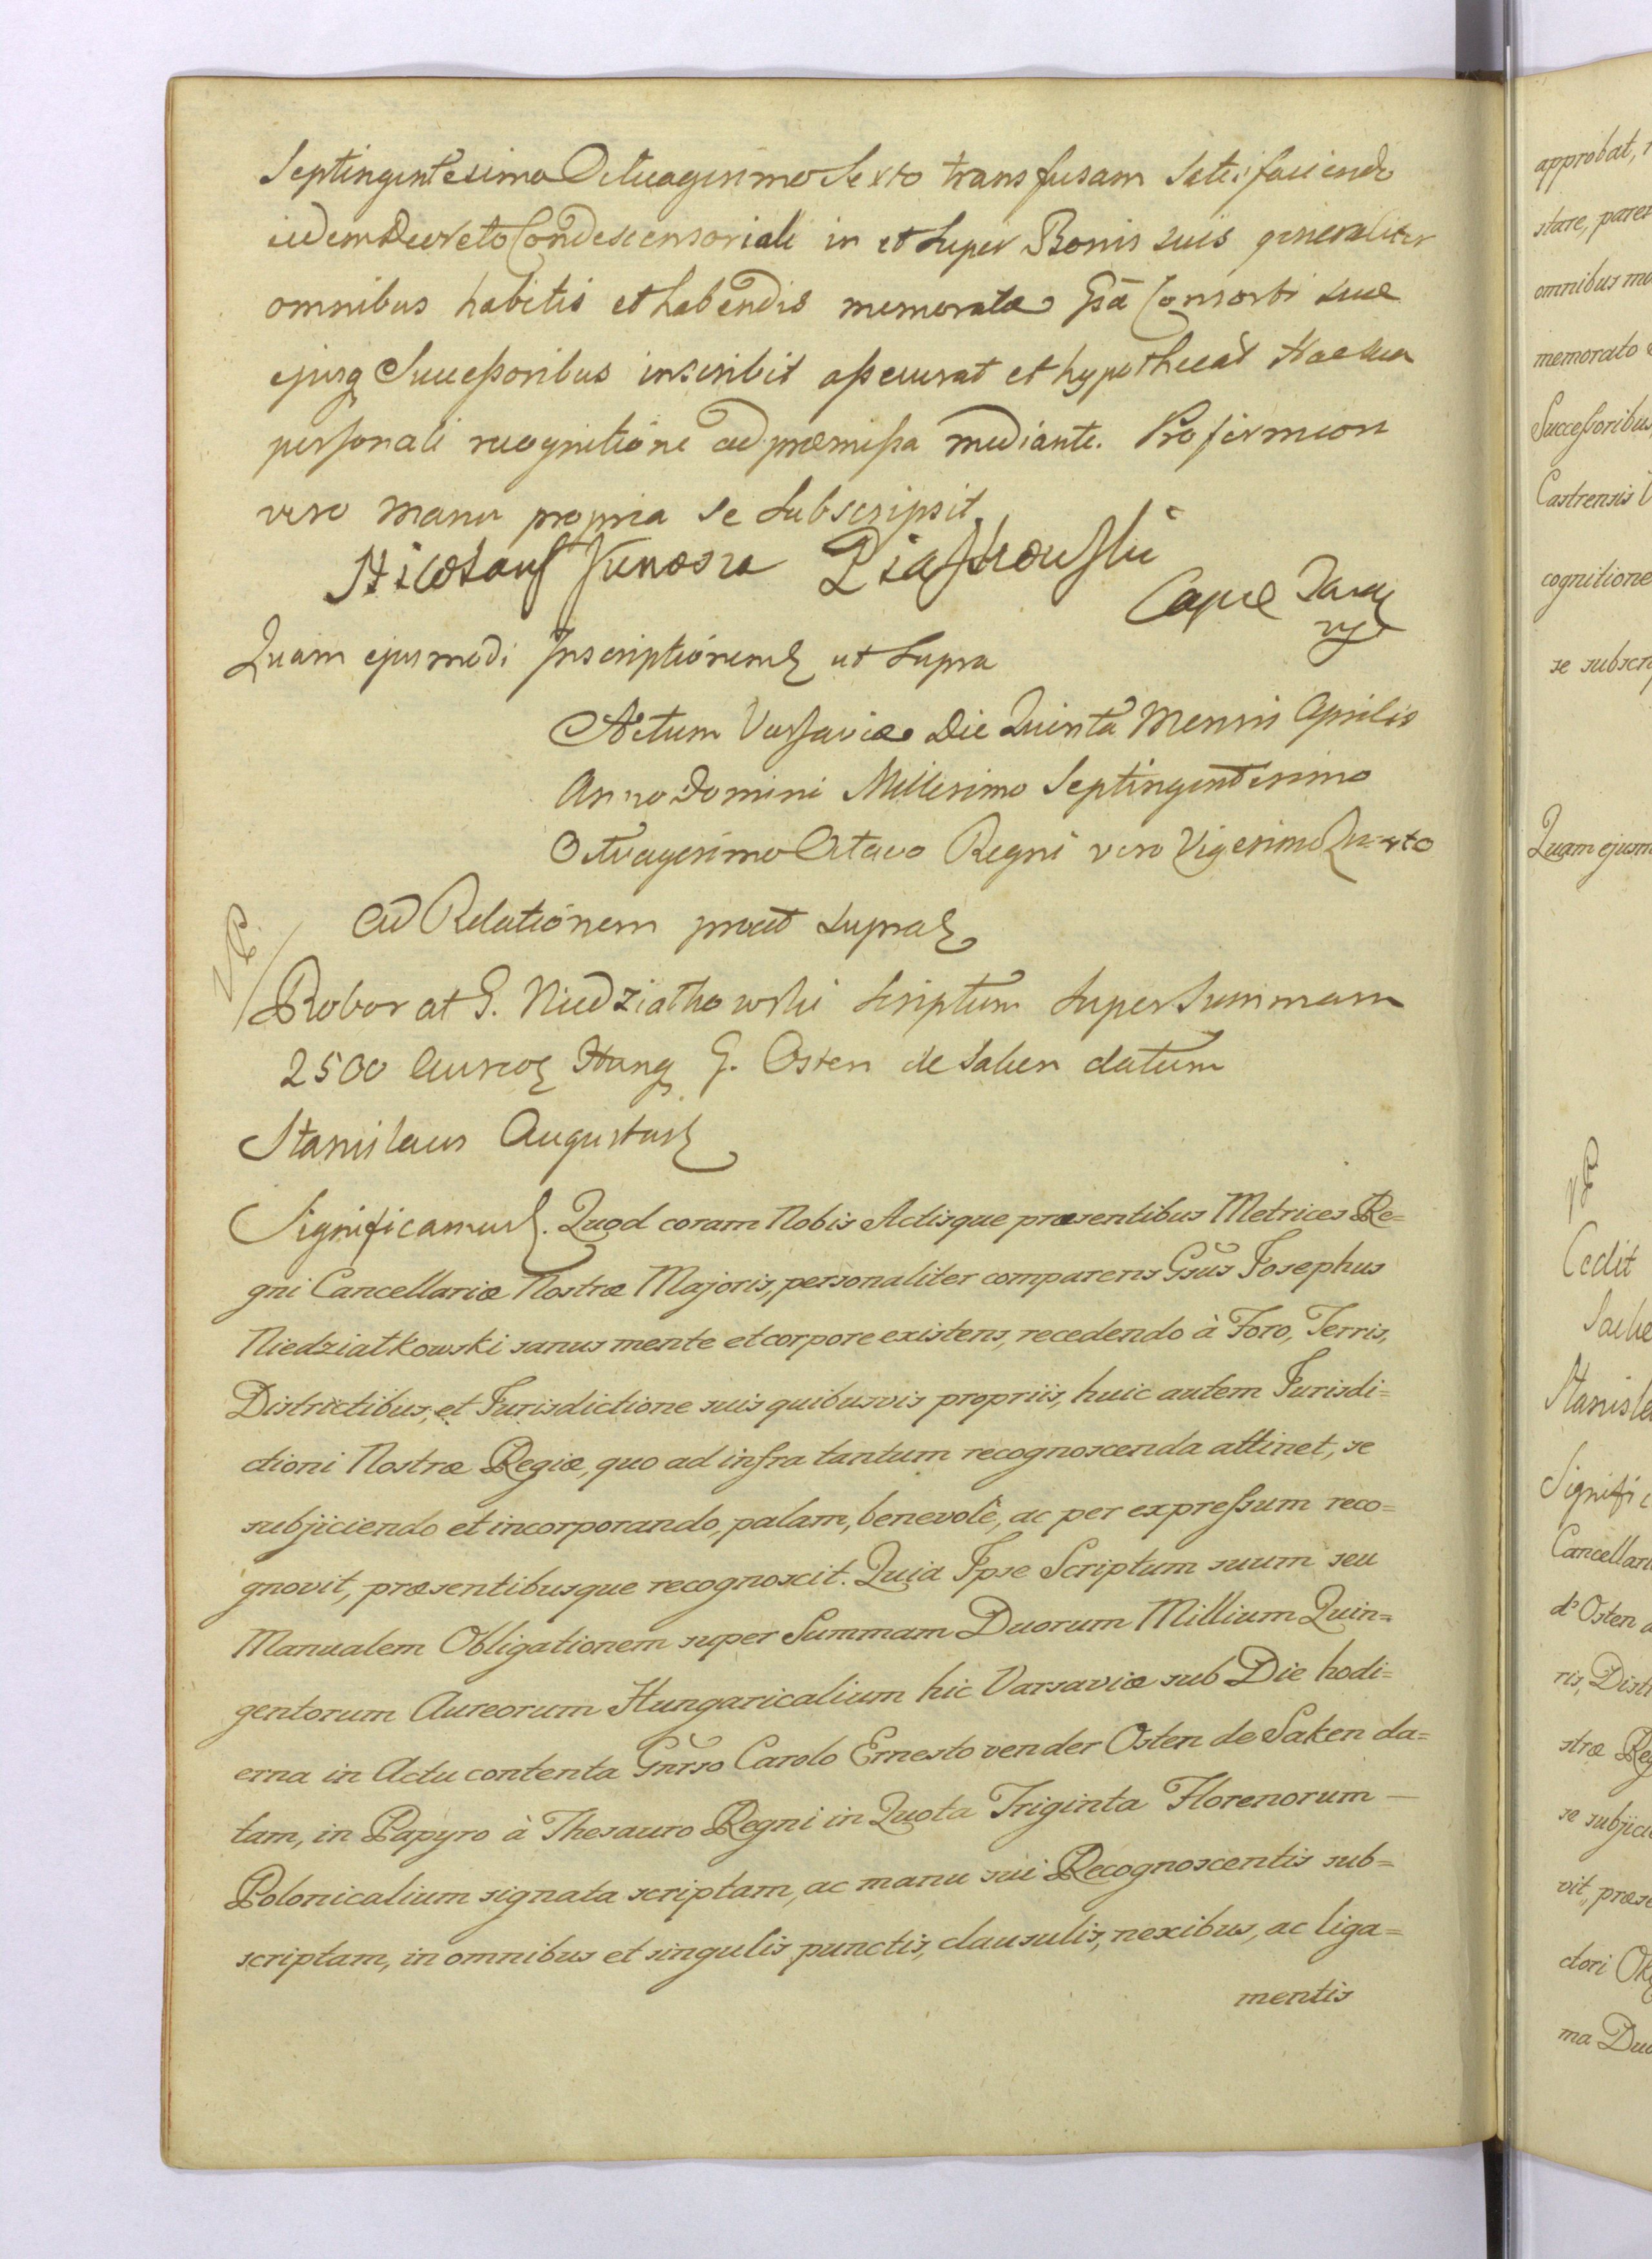 Septingentesimo Octuagesimo Sexto transfusam Satisfaciendo
eidem Decreto Condescensoriali in et super Bonis suis generaliter
omnibus habitis et habendis memoratæ Gsā Consorti suæ
ejusq Succeſsoribus inscribit aſsecurat et hypothecat Hac sua
personali recognitione ad præmiſsa mediante. Pro firmiori
vero manu propria se Subscripsit.
Nicolaus Junosza Piaskowski
Quam ejusmodi Inscriptionem ut Supra
Actum Varsaviæ Die Quinta Mensis Aprilis
Anno Domini Millesimo Septingentesimo
Octuagesimo Octavo Regni vero Vigesimo Quarto
Ad Relationem prout supra
Roborat G. Niedziałkowski Scriptum super Summam
2500 Aureor Hung G. Osten de Saken datum
Stanislaus Augustus
Significamus. Quod coram Nobis Actisque præsentibus Metrices Re=
gni Cancellariæ Nostræ Majoris, personaliter comparens Gsus Josephus
Niedziałkowski sanus mente et corpore existens, recedendo à Foro, Terris,
Districtibus, et Jurisdictione suis quibusvis propriis, huic autem Jurisdi=
ctioni Nostræ Regiæ, quo ad infra tantum recognoscenda attinet, se
subjiciendo et incorporando, palam, benevolè, ac per expreſsum reco=
gnovit, præsentibusque recognoscit. Quia Ipse Scriptum suum seu
Manualem Obligationem super Summam Duorum Millium Quin=
gentorum Aureorum Hungaricalium hic Varsaviæ sub Die hodi=
erna in Actu contenta Gnrso Carolo Ernesto vender Osten de Saken da=
tam, in Papyro à Thesauro Regni in Quota Triginta Florenorum —
Polonicalium signata scriptam, ac manu sui Recognoscentis sub=
scriptam, in omnibus et singulis punctis, clausulis, nexibus, ac liga=
mentis
approbat,
stare,
omnibus
memorato
Succeſsoribus
Castrensis
cognitione
se
Quam
Cedit
d'Osten
ris,
stræ
se
vit,
ctori
ma